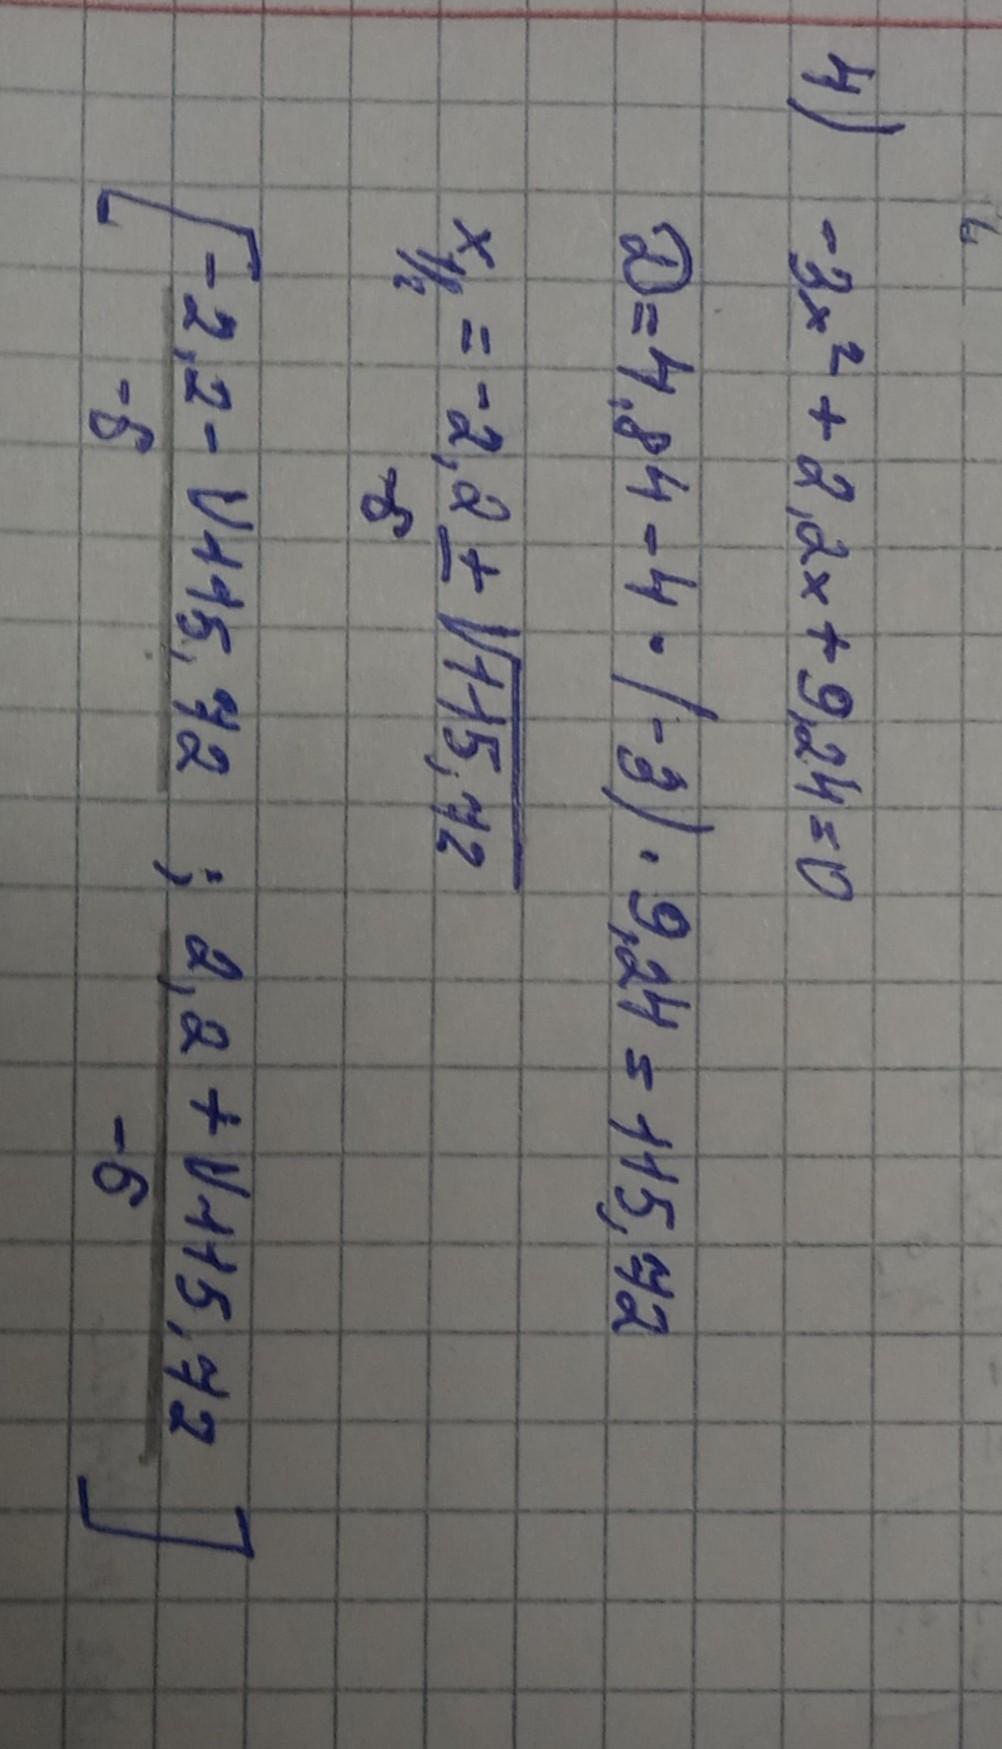 4) -3x² + 2,2x + 9,24 = 0
D = 4,84 - 4 · (-3) · 9,24 = 115,72
x₁/₂ = -2,2 ± √115,72
-6
[-2,2 - √115,72 ; 2,2 + √115,72]
-6 -6